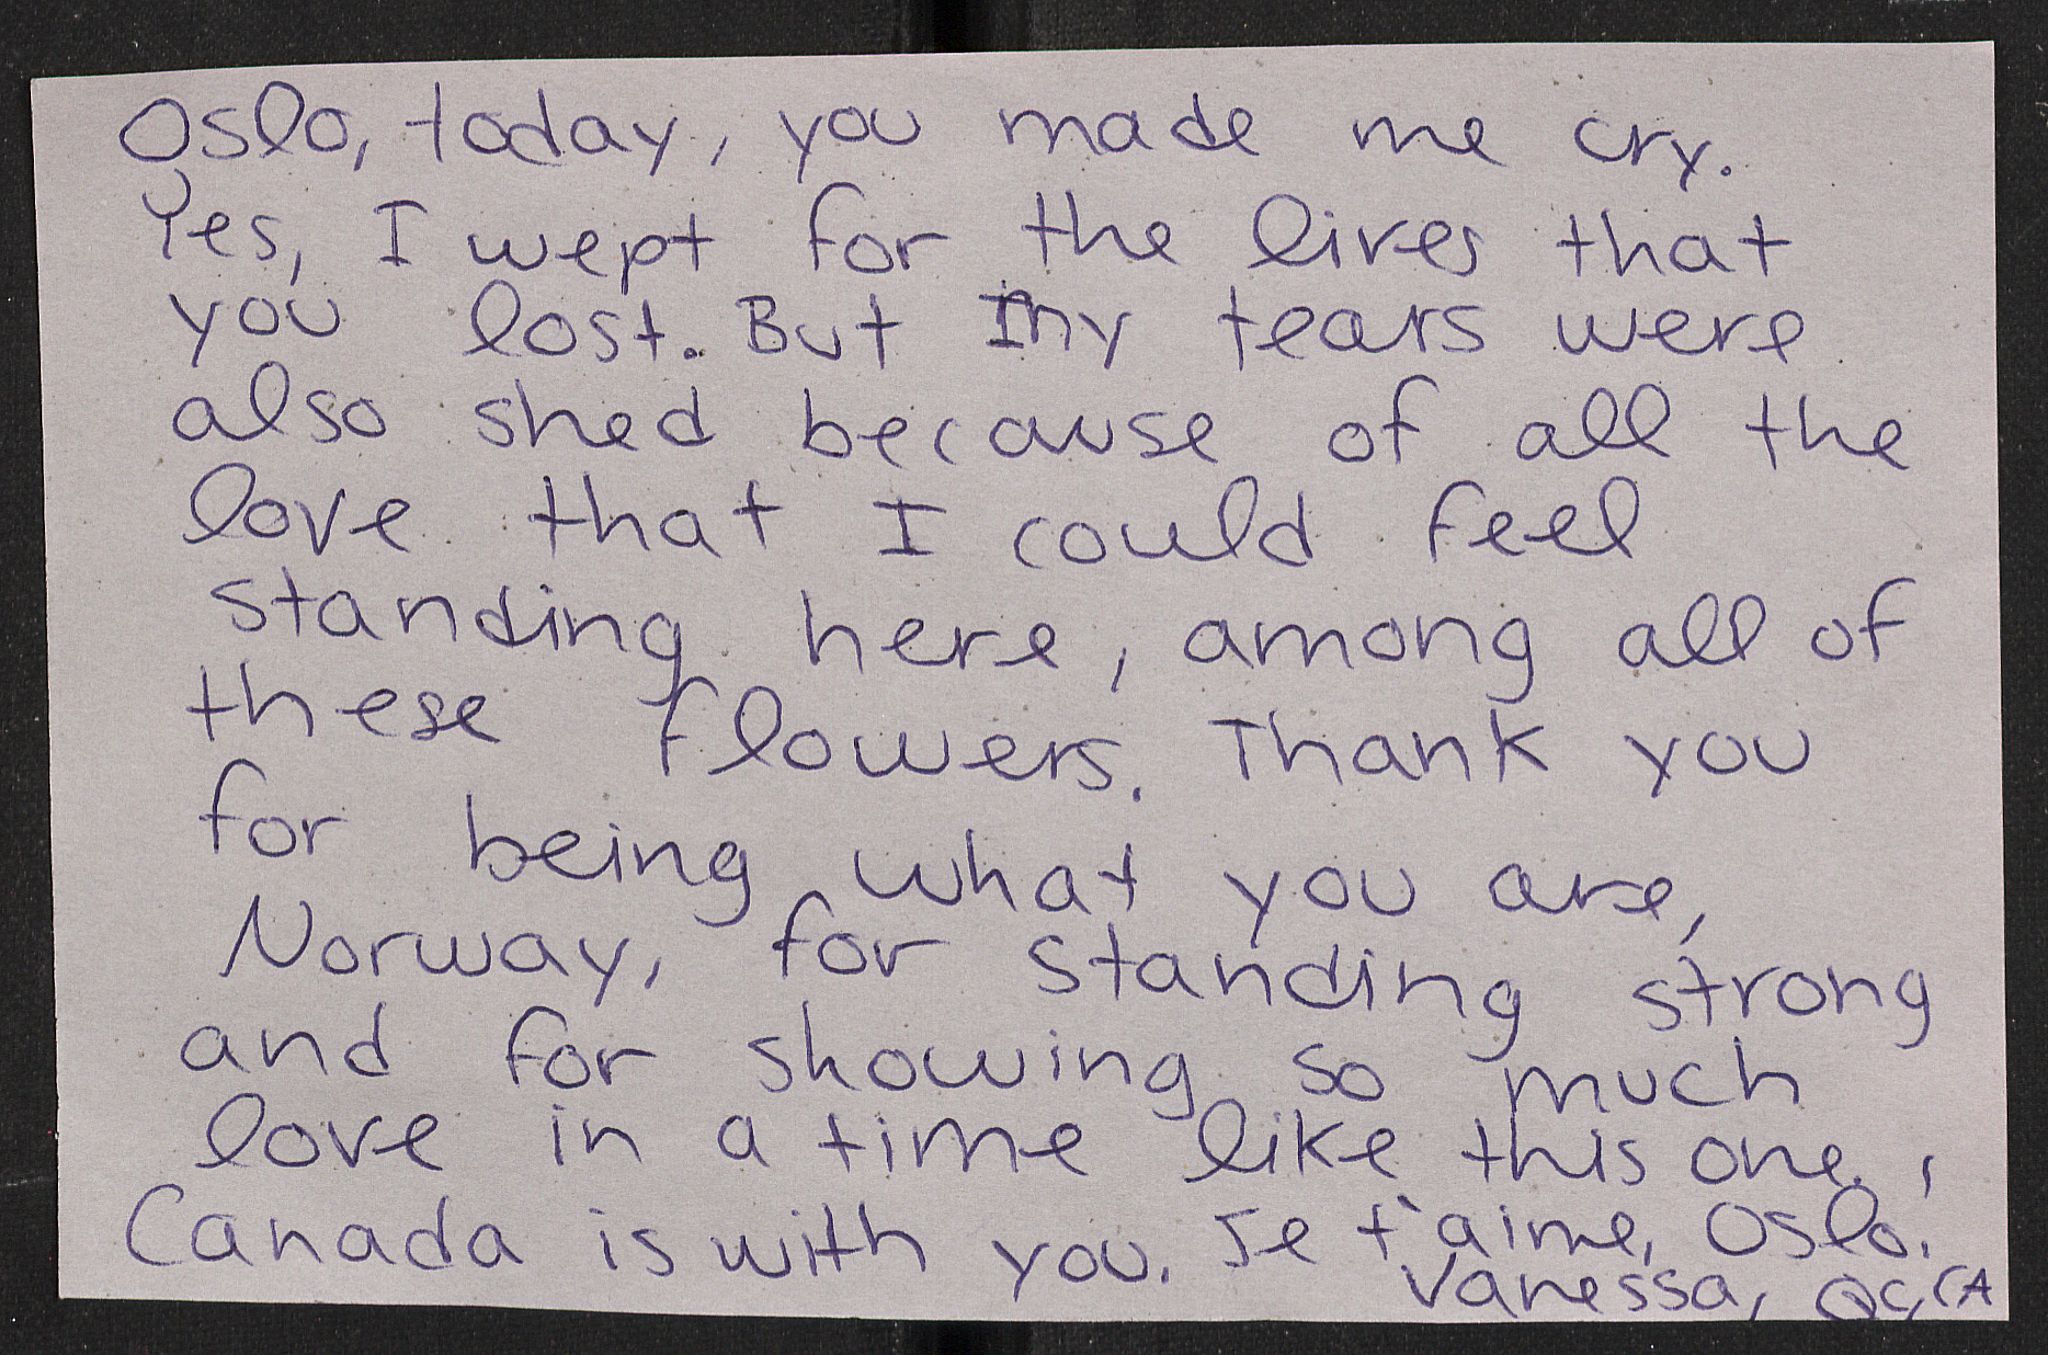 Oslo, today, you made me cry.
Yes, I wept for the lives that
you lost. But my tears were
also shed because of all the
love that I could feel
standing here, among all of
these flowers. Thank you
for being what you are,
Norway, for standing strong
and for showing so much
love in a time like this one,
Canada is with you. Je t'aime, Oslo.
Vanessa, Qc, CA